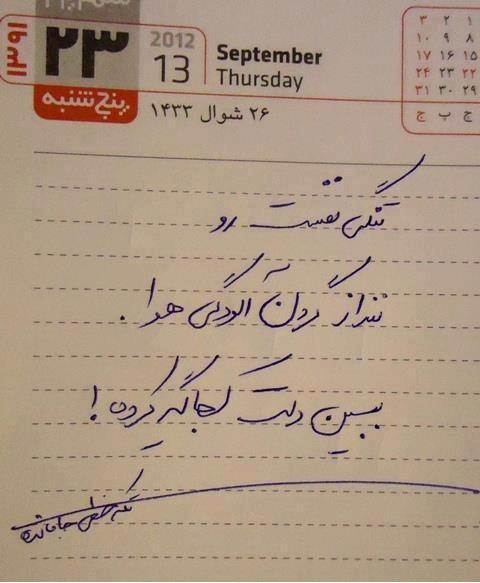 ۱۳۹۱
۲۳
پنج‌شنبه
2012
13
September
Thursday
۲۶ شوال ۱۴۳۳
۱ ۲ ۳
۸ ۹ ۱۰
۱۵ ۱۶ ۱۷
۲۲ ۲۳ ۲۴
۲۹ ۳۰ ۳۱
ج پ ج
تنگی نفست رو
ننداز گردن آلودگی هوا .
ببین دلت کجا گیر کرده !